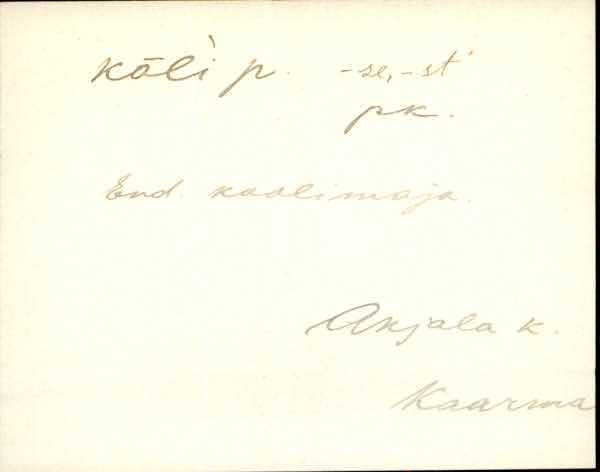 kōli p. -se, -st
pk.
End. koolimaja.
Anjala k.
Kaarma